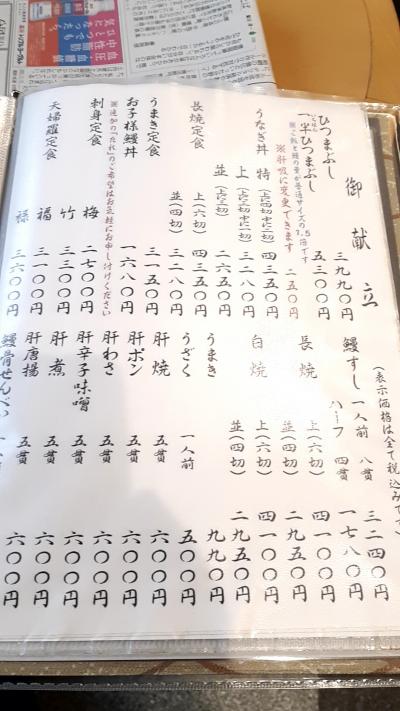 御献立
ひつまぶし 三九九〇円
一半ひつまぶし 五三〇〇円
※ご飯と鰻の量が普通サイズの1.5倍です
※肝吸に変更できます 二五〇円
うなぎ丼 特(上に四切中に二切) 四三五〇円
上(上に三切中に一切) 三二八〇円
並(上に三切) 二六五〇円
長焼定食 上(六切) 四三五〇円
並(四切) 三二八〇円
うまき定食 三一五〇円
お子様鰻丼 一六八〇円
※追加の「たれ」のご希望はお気軽にお申し付けください
刺身定食 梅 二七〇〇円
竹 三二〇〇円
天婦羅定食 福 三一〇〇円
禄 三六〇〇円
(表示価格は全て税込みです)
鰻すし 一人前 八貫 三二四〇円
ハーフ 四貫 一七八〇円
長焼 上(六切) 四一〇〇円
並(四切) 二九五〇円
白焼 上(六切) 四一〇〇円
並(四切) 二九五〇円
うまき 九九〇円
うざく 一人前 九五〇円
肝焼 五貫 六〇〇円
肝ポン 五貫 六〇〇円
肝わさ 五貫 六〇〇円
肝辛子味噌 五貫 六〇〇円
肝煮 五貫 六〇〇円
肝唐揚 五貫 六〇〇円
鰻骨せんべい 六〇〇円
血圧
血糖値
中性脂肪
いつでも
気になったら